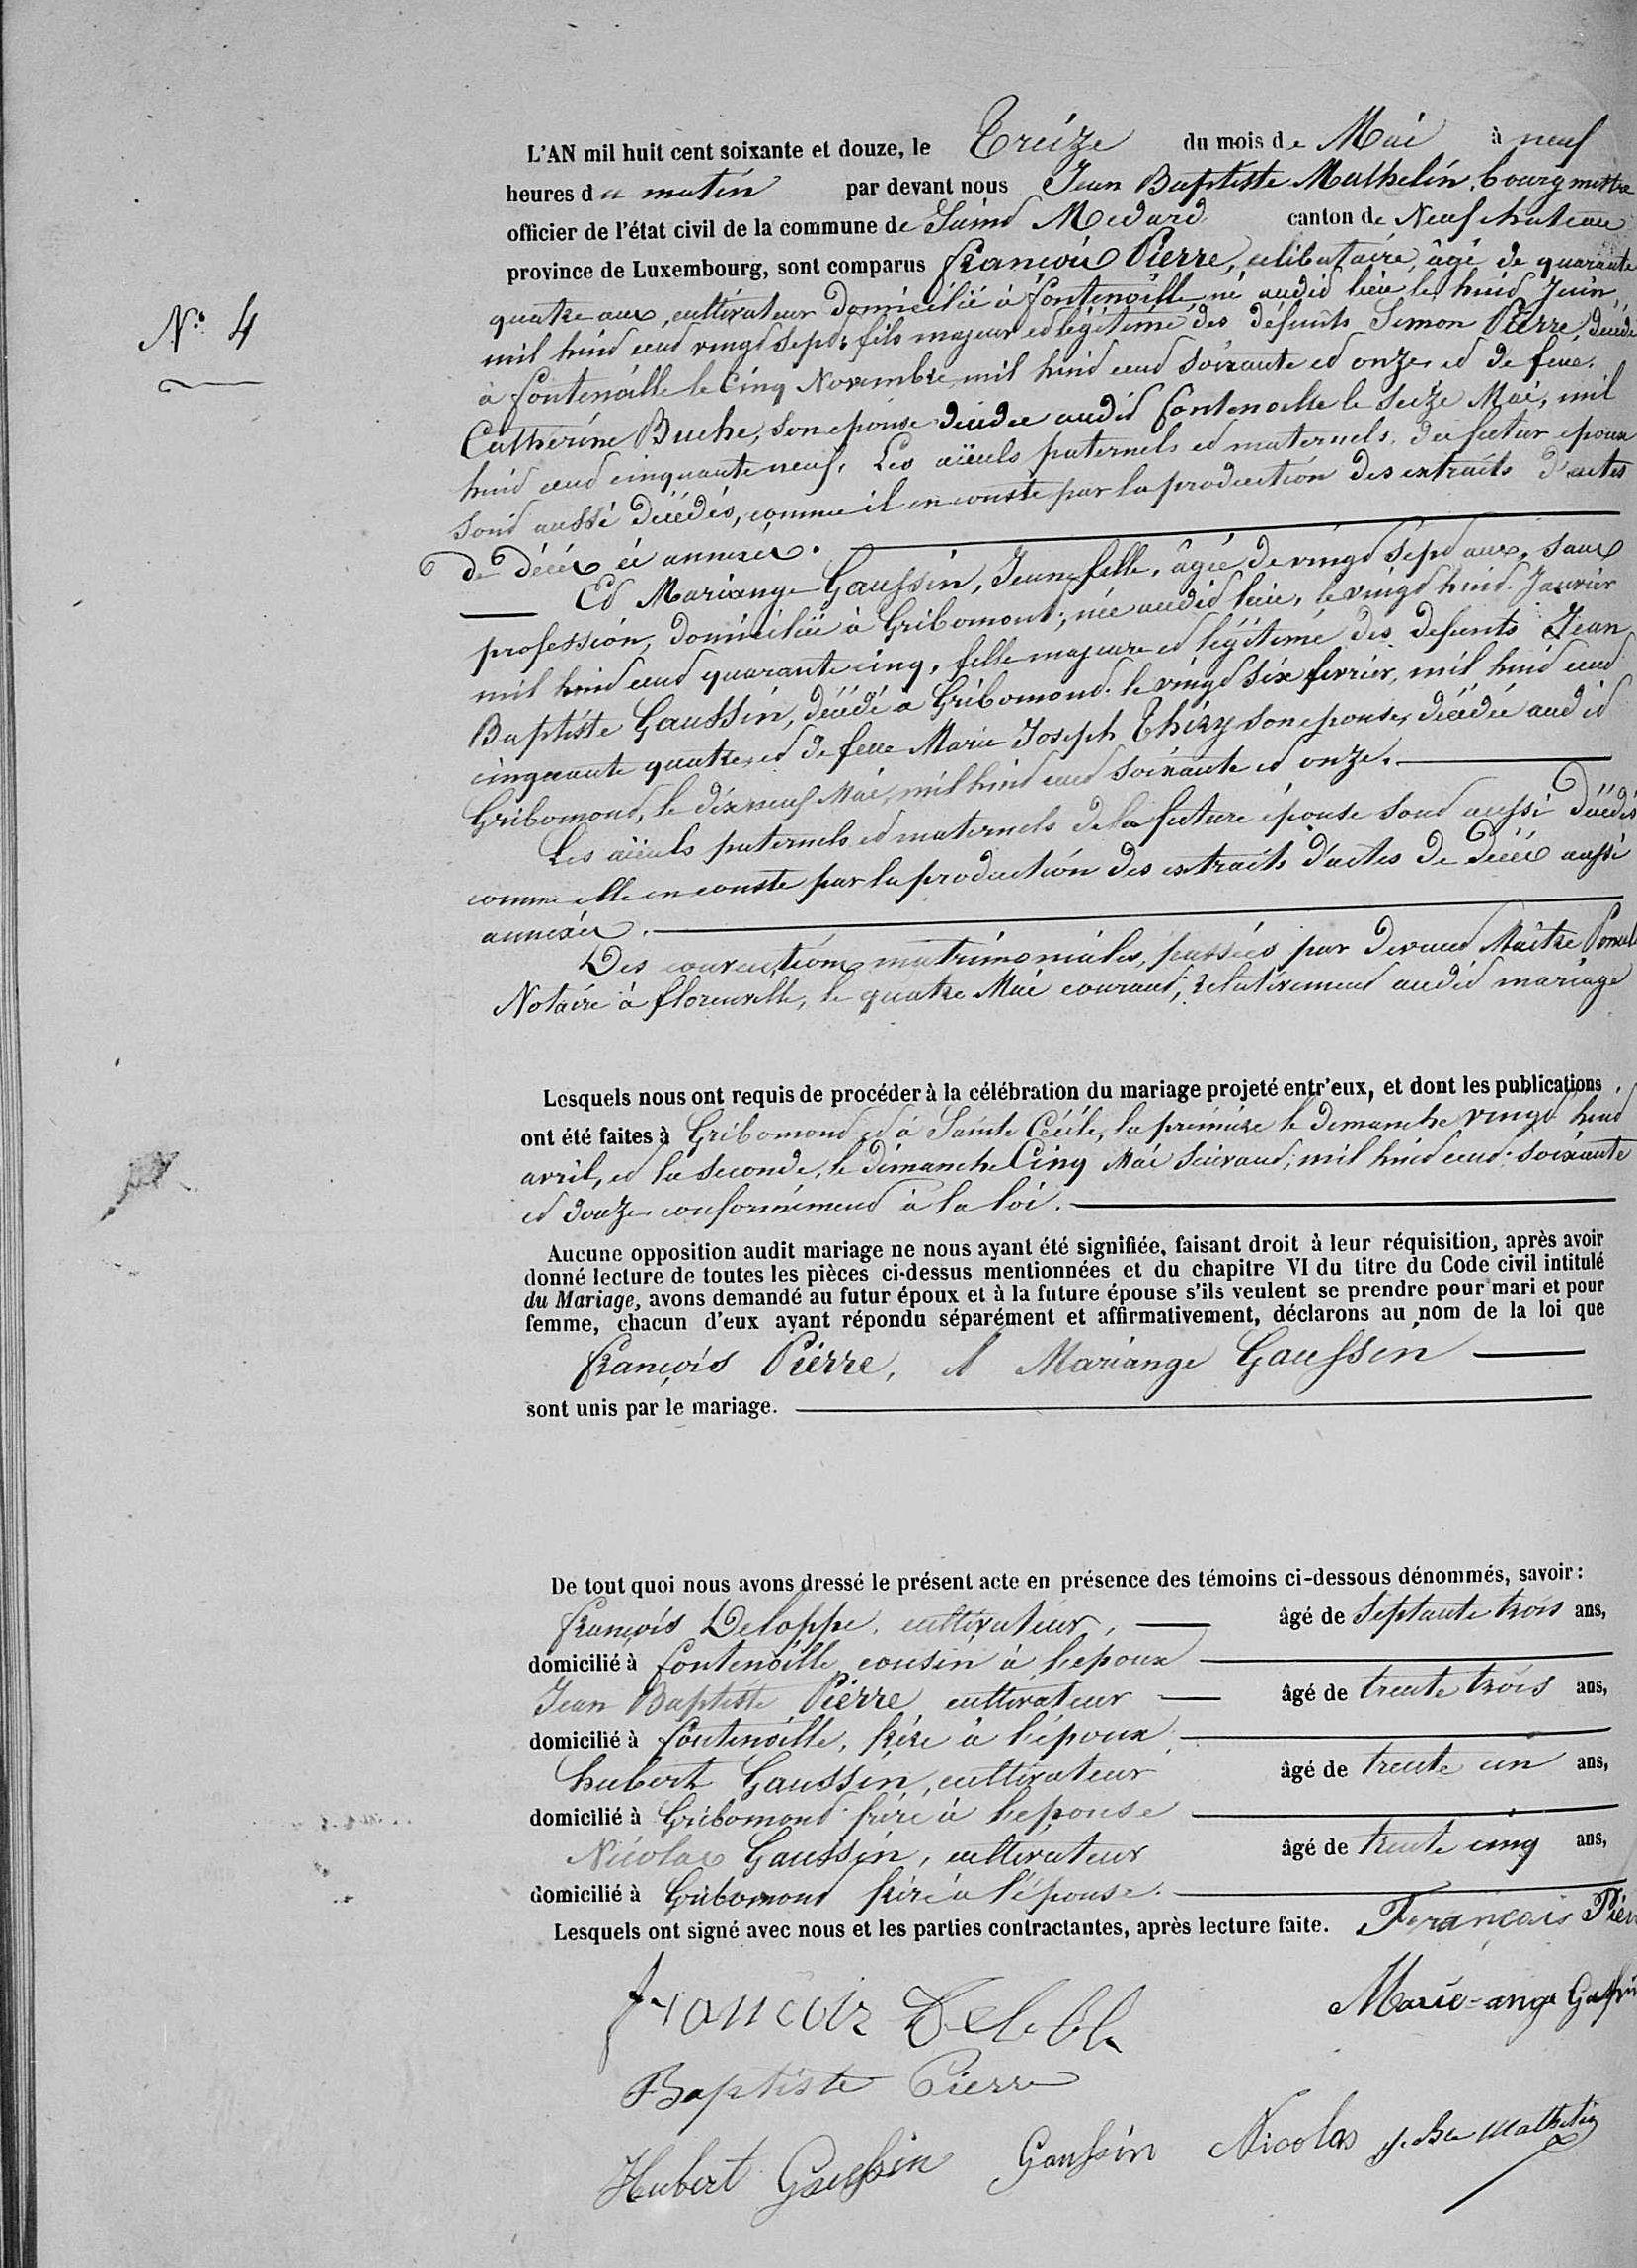 L'AN mil huit cent soixante et douze, le Treize du mois de Mai à neuf
heures du matin par devant nous Jean Baptiste Mathelin, bourgmettre
officier de l'état civil de la commune de Saint Medard canton de Neufchateau
province de Luxembourg, sont comparus françois Pierre, celibataire, âgé de quarante
N° 4
quatre ans, cultivateur domicilié à fontenoille né audit lieu le huit Juin
mil huit cent vingt sept, fils majeur et légitime des défunts Simon Pierre, décédé
à fontenoille le Cinq Novembre mil huit cent soixante et onze, et de feue.
Catherine Buche, son epouse décédée audit fontenoille le seize Mai, mil
huit cent cinquante neuf. Les aïeuls paternels et maternels, du futur epoux
sont aussi décédés, comme il en conste par la production des extraits d'actes
de décès ci annexés.
Et Mariange Gaussin, Jeune fille, âgée de vingt sept ans, sans
profession, domiciliée à Gribomont; née audit lieu, le vingt huit Janvier
mil huit cent quarante cinq, fille majeure et légitime des defunts Jean
Baptiste Gaussin, décédé à Gribomont le vingt six fevrier, mil huit cent
cinquante quatre, et de feue Marie Joseph Thiry son epouse, décédée audit
Gribomont, le dix neuf Mai, mil huit cent soixante et onze.
Les aïeuls paternels et maternels de la future épouse sont aussi décédés
comme elle en conste par la production des extraits d'actes de décès aussi
annexés.
Des conventions matrimoniales, passées par devant Maître
Notaire à florenville, le quatre Mai courant, relativement audit mariage
Lesquels nous ont requis de procéder à la célébration du mariage projeté entr'eux, et dont les publications
ont été faites à Gribomont et à Sainte Cécile, la première le dimanche vingt huit
avril, et la seconde, le dimanche Cinq Mai suivant, mil huit cent soixante
et douze conformément à la loi.
Aucune opposition audit mariage ne nous ayant été signifiée, faisant droit à leur réquisition, après avoir
donné lecture de toutes les pièces ci-dessus mentionnées et du chapitre VI du titre du Code civil intitulé
du Mariage, avons demandé au futur époux et à la future épouse s'ils veulent se prendre pour mari et pour
femme, chacun d'eux ayant répondu séparément et affirmativement, déclarons au nom de la loi que
françois Pierre, et Mariange Gaussin
sont unis par le mariage.
De tout quoi nous avons dressé le présent acte en présence des témoins ci-dessous dénommés, savoir:
françois Deloppe, cultivateur, âgé de septante trois ans,
domicilié à fontenoille cousin à l'epoux
Jean Baptiste Pierre cultivateur âgé de trente trois ans,
domicilié à fontenoille, frère à l'époux
hubert Gaussin, cultivateur âgé de trente un ans,
domicilié à Gribomont frère à l'epouse
Nicolas Gaussin, cultivateur âgé de trente cinq ans,
domicilié à Gribomont frère à l'épouse.
Lesquels ont signé avec nous et les parties contractantes, après lecture faite. François Pierr
françois
Marie-ange Gaussin
Baptiste Pierre
Hubert Gaussin Gaussin Nicolas J. Bte Mathelin